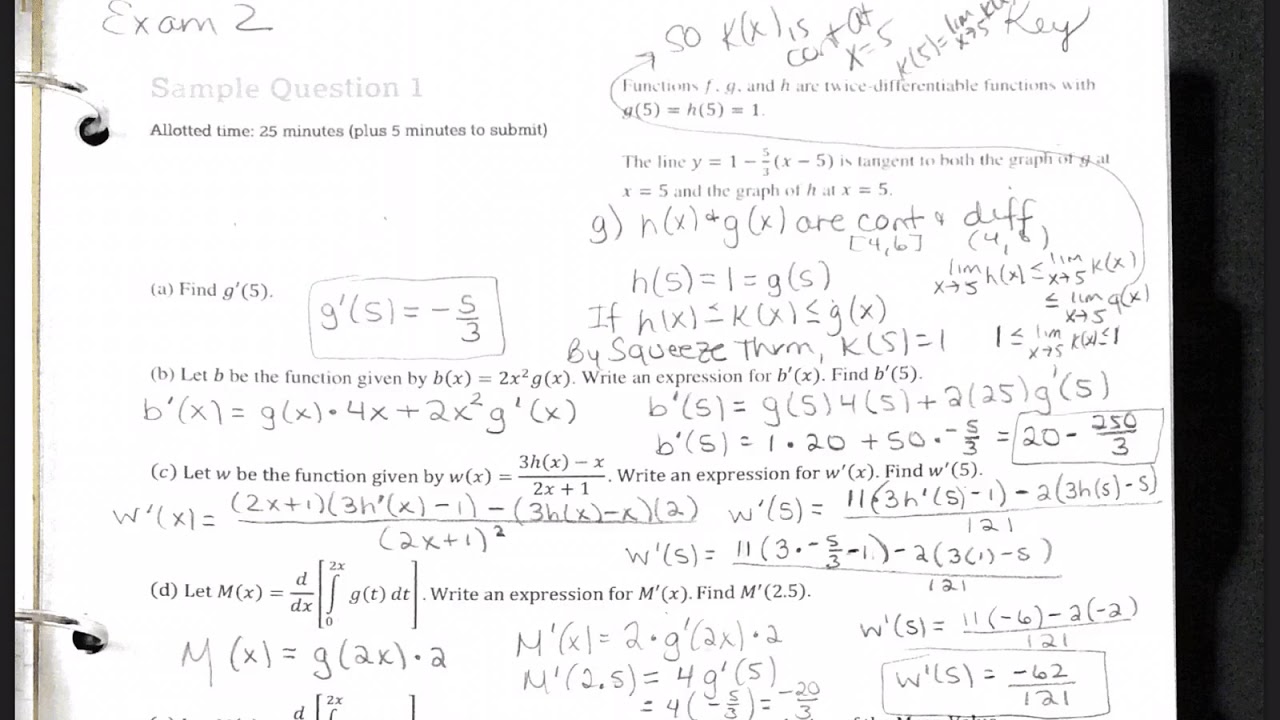 Exam 2
So K(x) is cont at x=5 K(5)=lim x→5 K(x) Key
Sample Question 1
Allotted time: 25 minutes (plus 5 minutes to submit)
Functions f, g, and h are twice-differentiable functions with
g(5) = h(5) = 1.
The line y = 1 − 5/3(x − 5) is tangent to both the graph of g at
x = 5 and the graph of h at x = 5.
g) h(x) & g(x) are cont & diff
[4,6] (4,6)
h(5) = 1 = g(5)
If h(x) ≤ K(x) ≤ g(x)
By Squeeze Thrm, K(5) = 1
lim x→5 h(x) ≤ lim x→5 K(x)
≤ lim x→5 g(x)
1 ≤ lim x→5 K(x) ≤ 1
(a) Find g′(5).
g'(5) = −5/3
(b) Let b be the function given by b(x) = 2x²g(x). Write an expression for b′(x). Find b′(5).
b'(x) = g(x)·4x + 2x² g'(x)
b'(5) = g(5)4(5) + 2(25)g'(5)
b'(5) = 1·20 + 50·−5/3 = 20 − 250/3
(c) Let w be the function given by w(x) = (3h(x) − x)/(2x + 1). Write an expression for w′(x). Find w′(5).
w'(x) = (2x+1)(3h'(x)−1) − (3h(x)−x)(2) / (2x+1)²
w'(5) = 11(3h'(5)−1) − 2(3h(5)−5) / 121
w'(5) = 11(3·−5/3−1) − 2(3(1)−5) / 121
w'(5) = 11(−6)−2(−2) / 121
w'(5) = −62/121
(d) Let M(x) = d/dx [∫₀²ˣ g(t) dt]. Write an expression for M′(x). Find M′(2.5).
M(x) = g(2x)·2
M'(x) = 2·g'(2x)·2
M'(2.5) = 4g'(5)
= 4(−5/3) = −20/3
d [∫ 2x ]